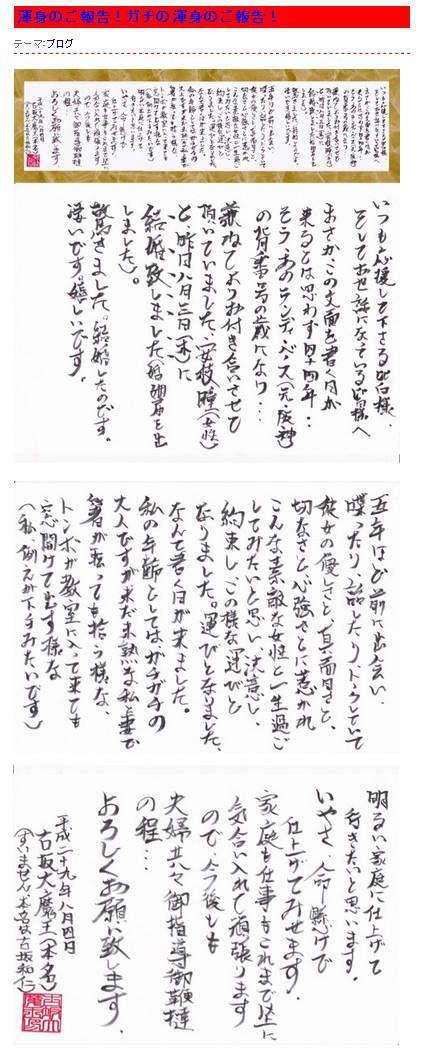 渾身のご報告！ガチの渾身のご報告！
テーマ：ブログ
いつも応援して下さる皆様、
そしてお世話になっている皆様へ
まさかこの文面を書く日が
来るとは思わず四十四年‥
そう、あのランディ・バース（元・阪神）
の背番号の歳になり‥
兼ねてよりお付き合いさせて
頂いていました、安枝瞳（女性）
と、昨日八月三日（木）に
結婚致しました（婚姻届を出
しました）。
驚きました。結婚したのです。
凄いです。嬉しいです。
五年ほど前に出会い、
喋ったり、話したり、トークしていて
彼女の優しさと、真面目さと、
切なさと心強さとに惹かれ
こんな素敵な女性と一生過ご
してみたいと思い、決意し、
約束し、この様な運びと
なりました。運びとなりました、
なんて書く日が来ました。
私の年齢としては、ガチガチの
大人ですが、まだまだ未熟な私と妻で
箸が転っても拾う様な、
トンボが教室に入って来ても
窓開けて出す様な
（私、例えが下手みたいです）
明るい家庭に仕上げて
行きたいと思います。
いやさ、命懸けで
仕上げてみせます。
家庭も仕事もこれまで以上に
気合い入れて頑張ります
ので、今後とも
夫婦共々御指導御鞭撻
の程‥
よろしくお願い致します。
平成二十九年八月四日
古坂大魔王（本名）
（すいません、本名は古坂和仁）